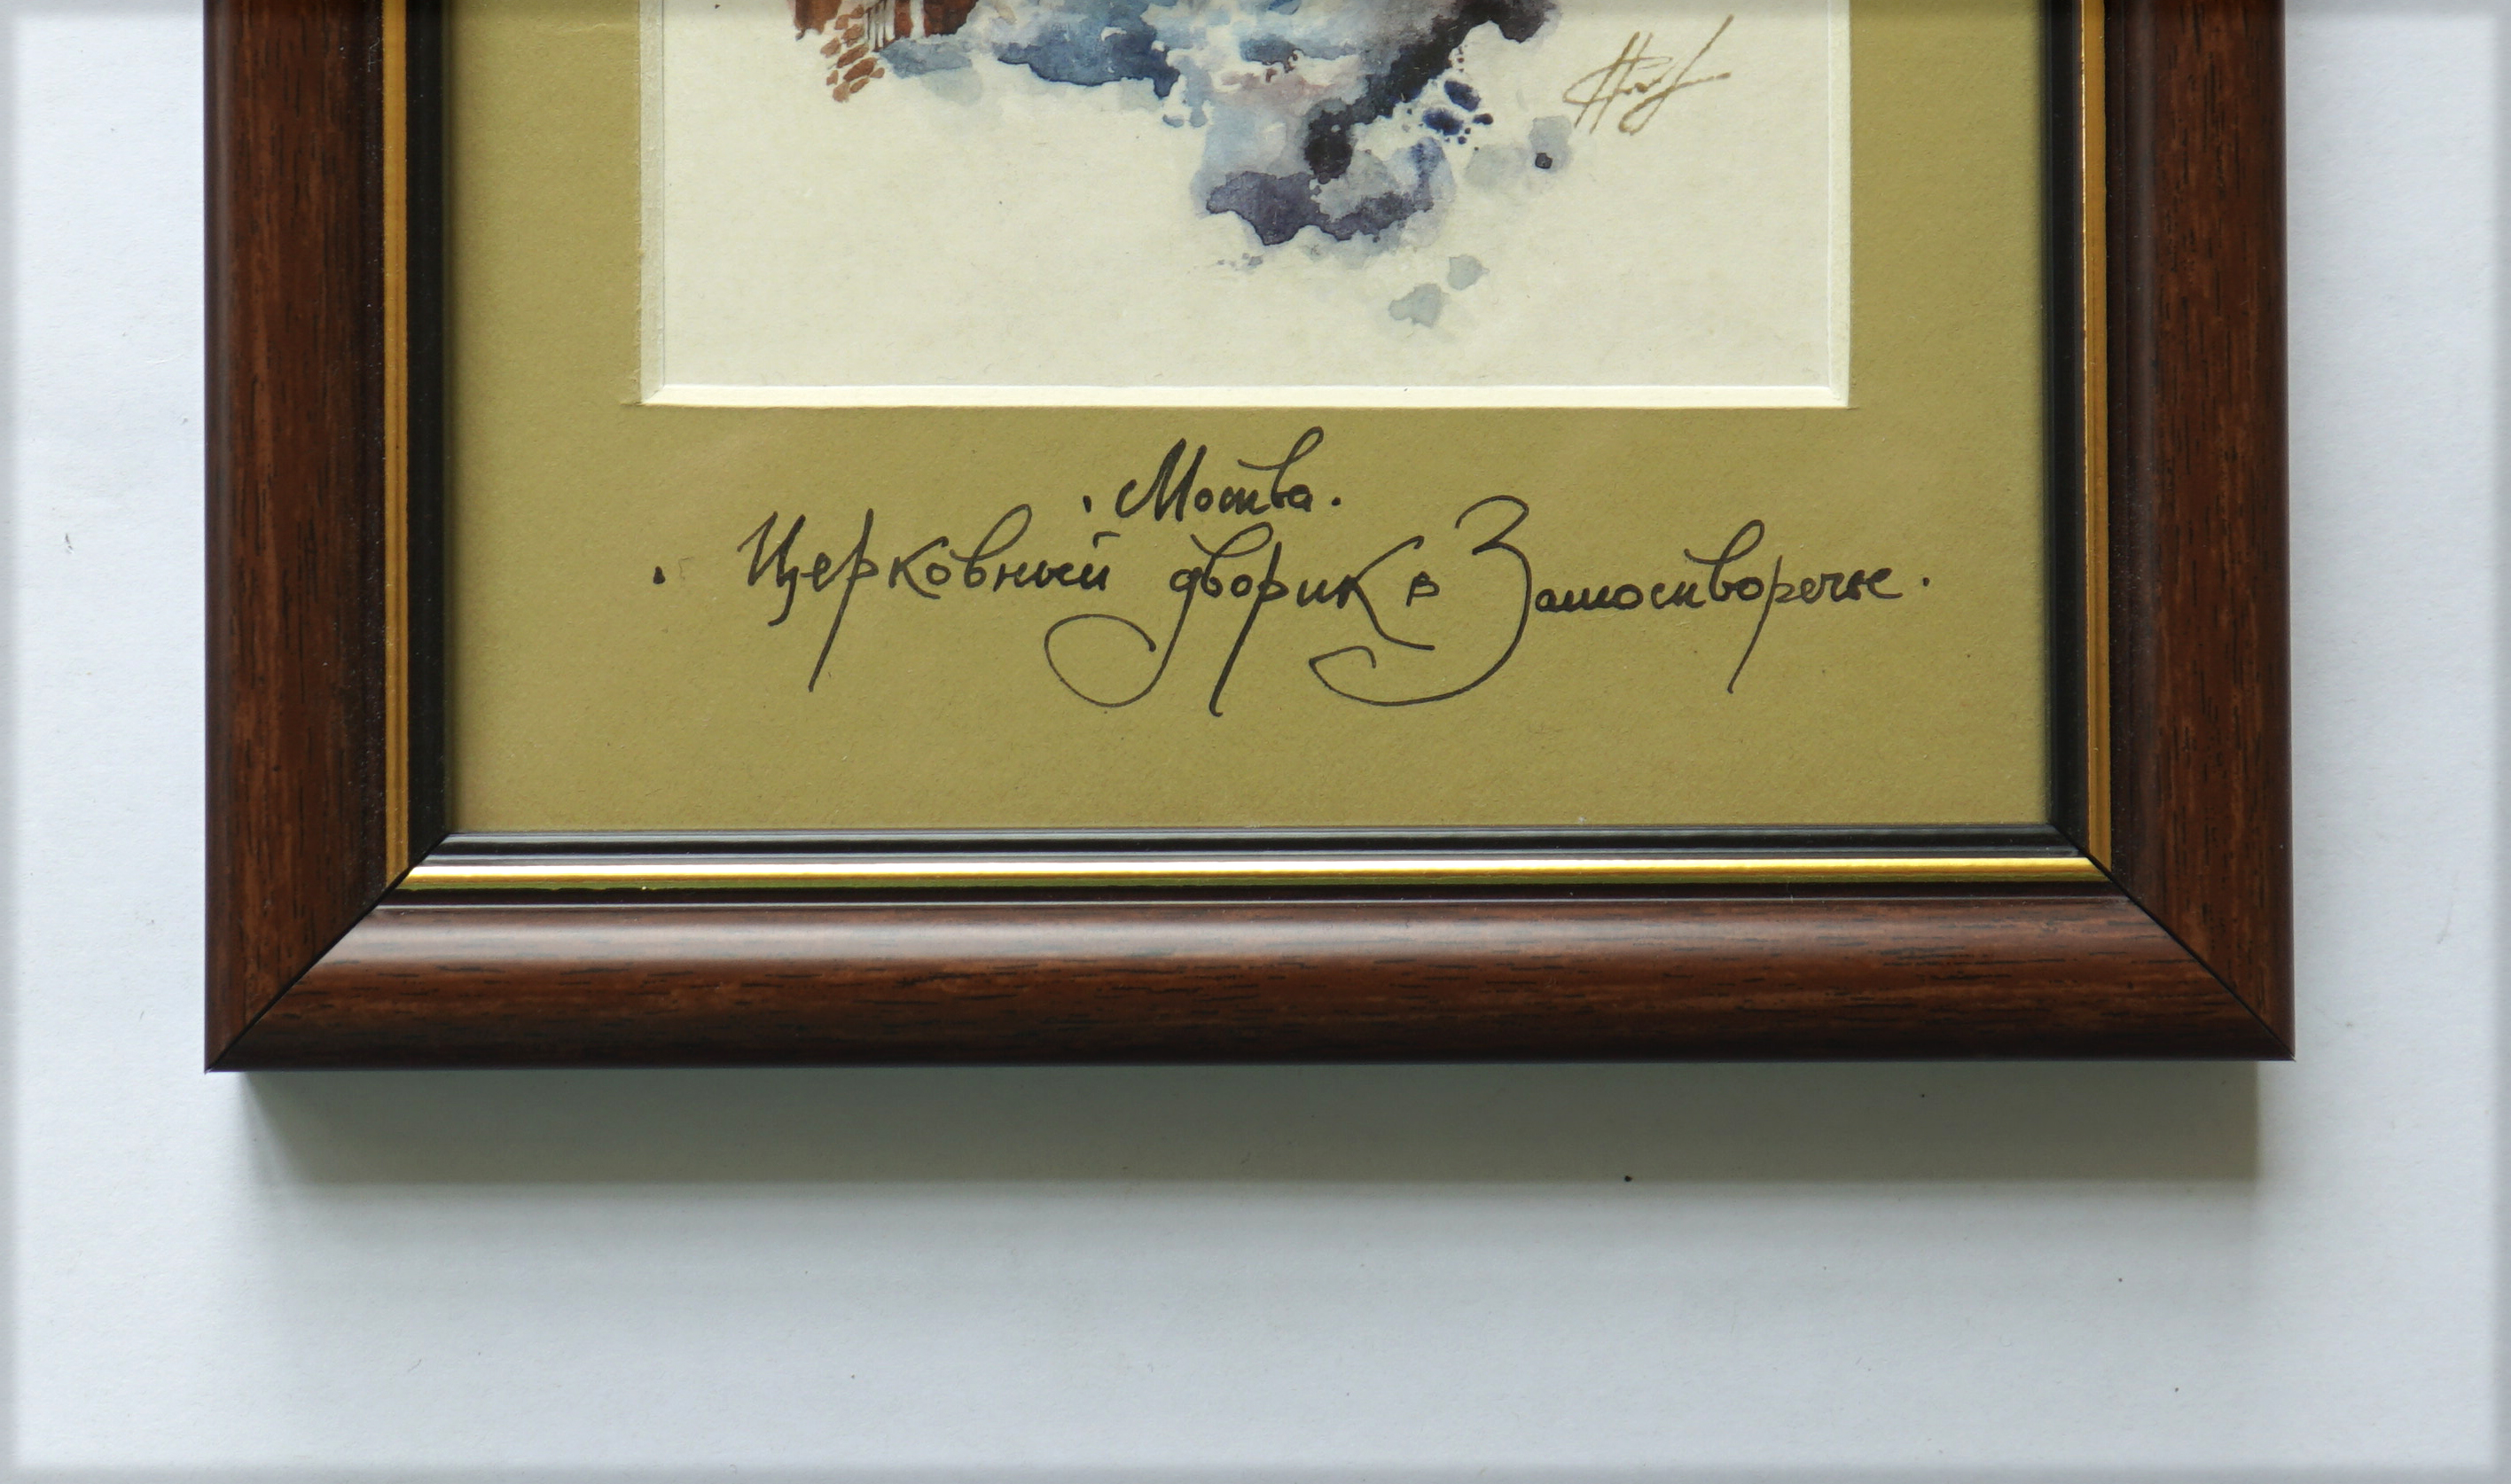 . Москва.
. Церковный дворик в Замоскворечье.